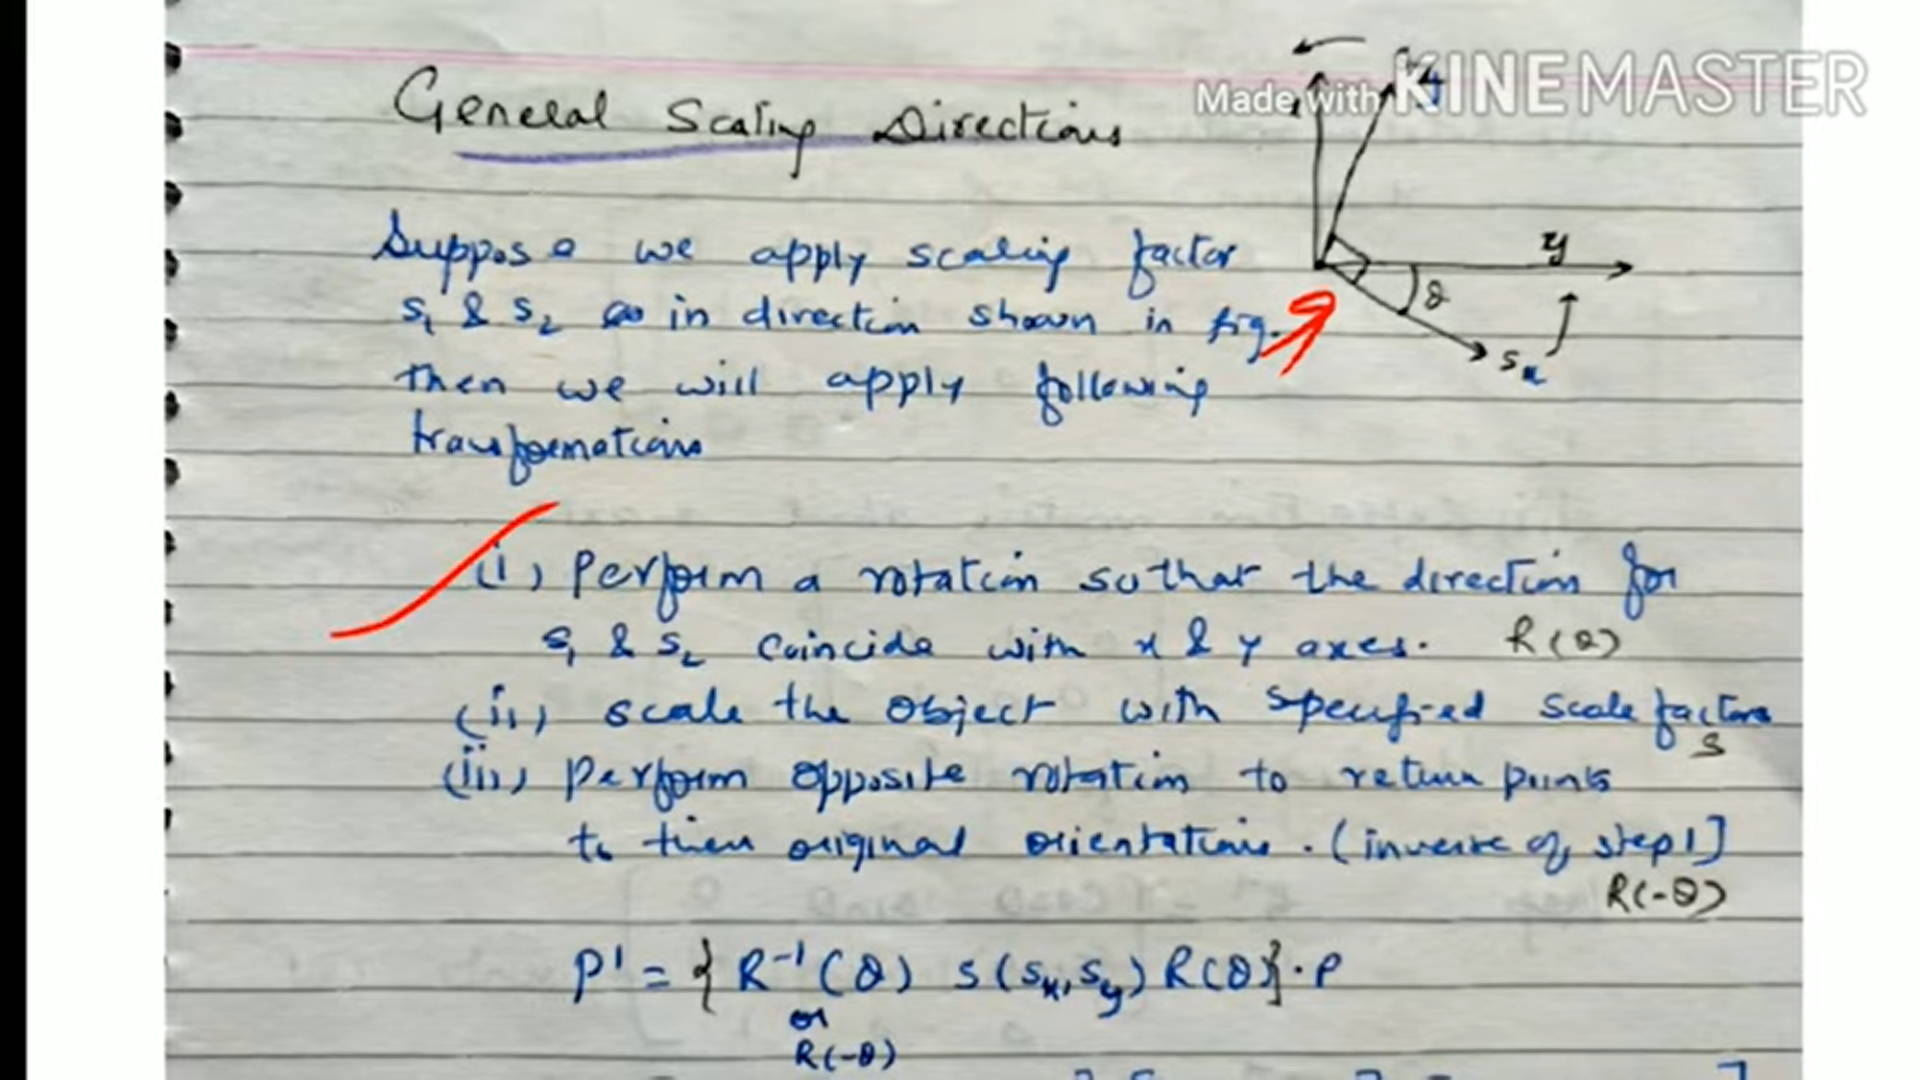 Made with KINEMASTER
General Scaling Directions
y
θ
Sx
Suppose we apply scaling factor
S1 & S2 in direction shown in fig.
then we will apply following
transformations
(i) Perform a rotation so that the direction for
S1 & S2 coincide with x & y axes. R(θ)
(ii) scale the object with specified scale factors
S
(iii) perform opposite rotation to return points
to their original orientations. (inverse of step 1]
R(-θ)
P' = { R⁻¹(θ) S(Sx, Sy) R(θ)}·P
or
R(-θ)